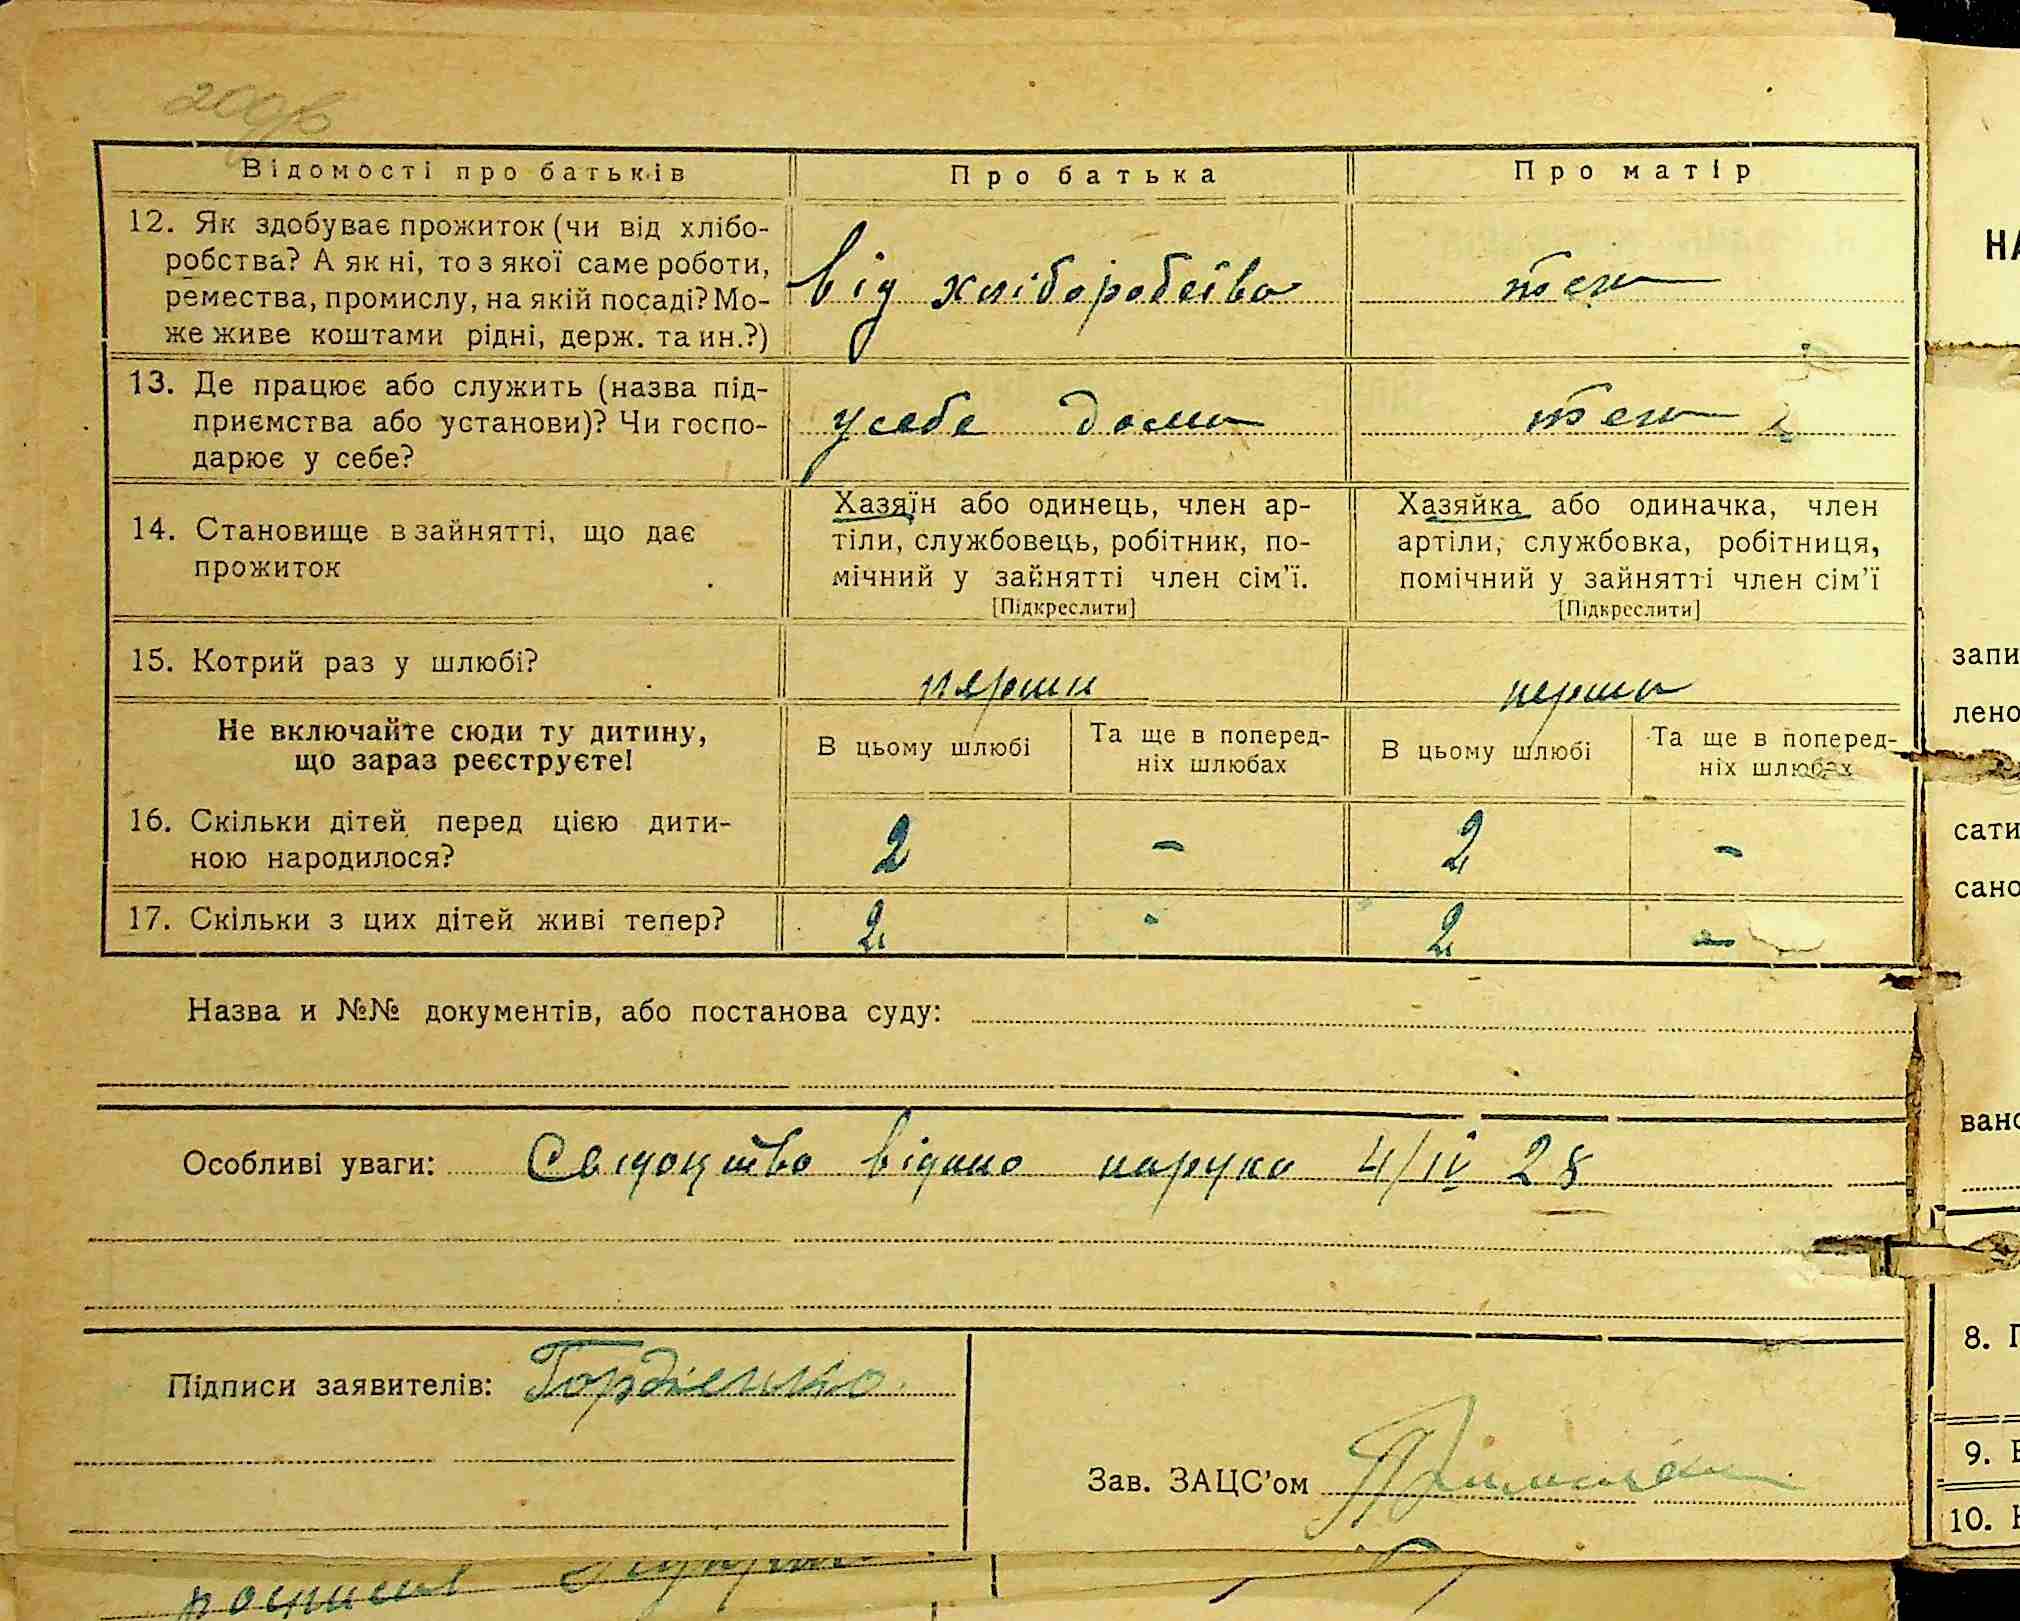 Відомості про батьків
Про батька
Про матір
12. Як здобуває прожиток (чи від хлібо-
робства? А як ні, то з якої саме роботи,
ремества, промислу, на якій посаді? Мо-
же живе коштами рідні, держ. та ин.?)
від хліборобства
теж
13. Де працює або служить (назва під-
приємства або установи)? Чи госпо-
дарює у себе?
у себе дома
теж
14. Становище в зайнятті, що дає
прожиток
Хазяїн або одинець, член ар-
тіли, службовець, робітник, по-
мічний у зайнятті член сім'ї.
[Підкреслити]
Хазяйка або одиначка, член
артіли, службовка, робітниця,
помічний у зайнятті член сім'ї
[Підкреслити]
15. Котрий раз у шлюбі?
перший
перша
Не включайте сюди ту дитину,
що зараз реєструєте!
В цьому шлюбі
Та ще в поперед-
ніх шлюбах
В цьому шлюбі
Та ще в поперед-
ніх шлюбах
16. Скільки дітей перед цією дити-
ною народилося?
2 - 2 -
17. Скільки з цих дітей живі тепер?
2 - 2 -
Назва и №№ документів, або постанова суду:
Особливі уваги: Свідоцтво відано наруки 4/IV 28
Підписи заявителів: Гордієнко
Зав. ЗАЦС'ом
НА
запи
лено
сати
сано
вано
8. П
9. В
10. Н